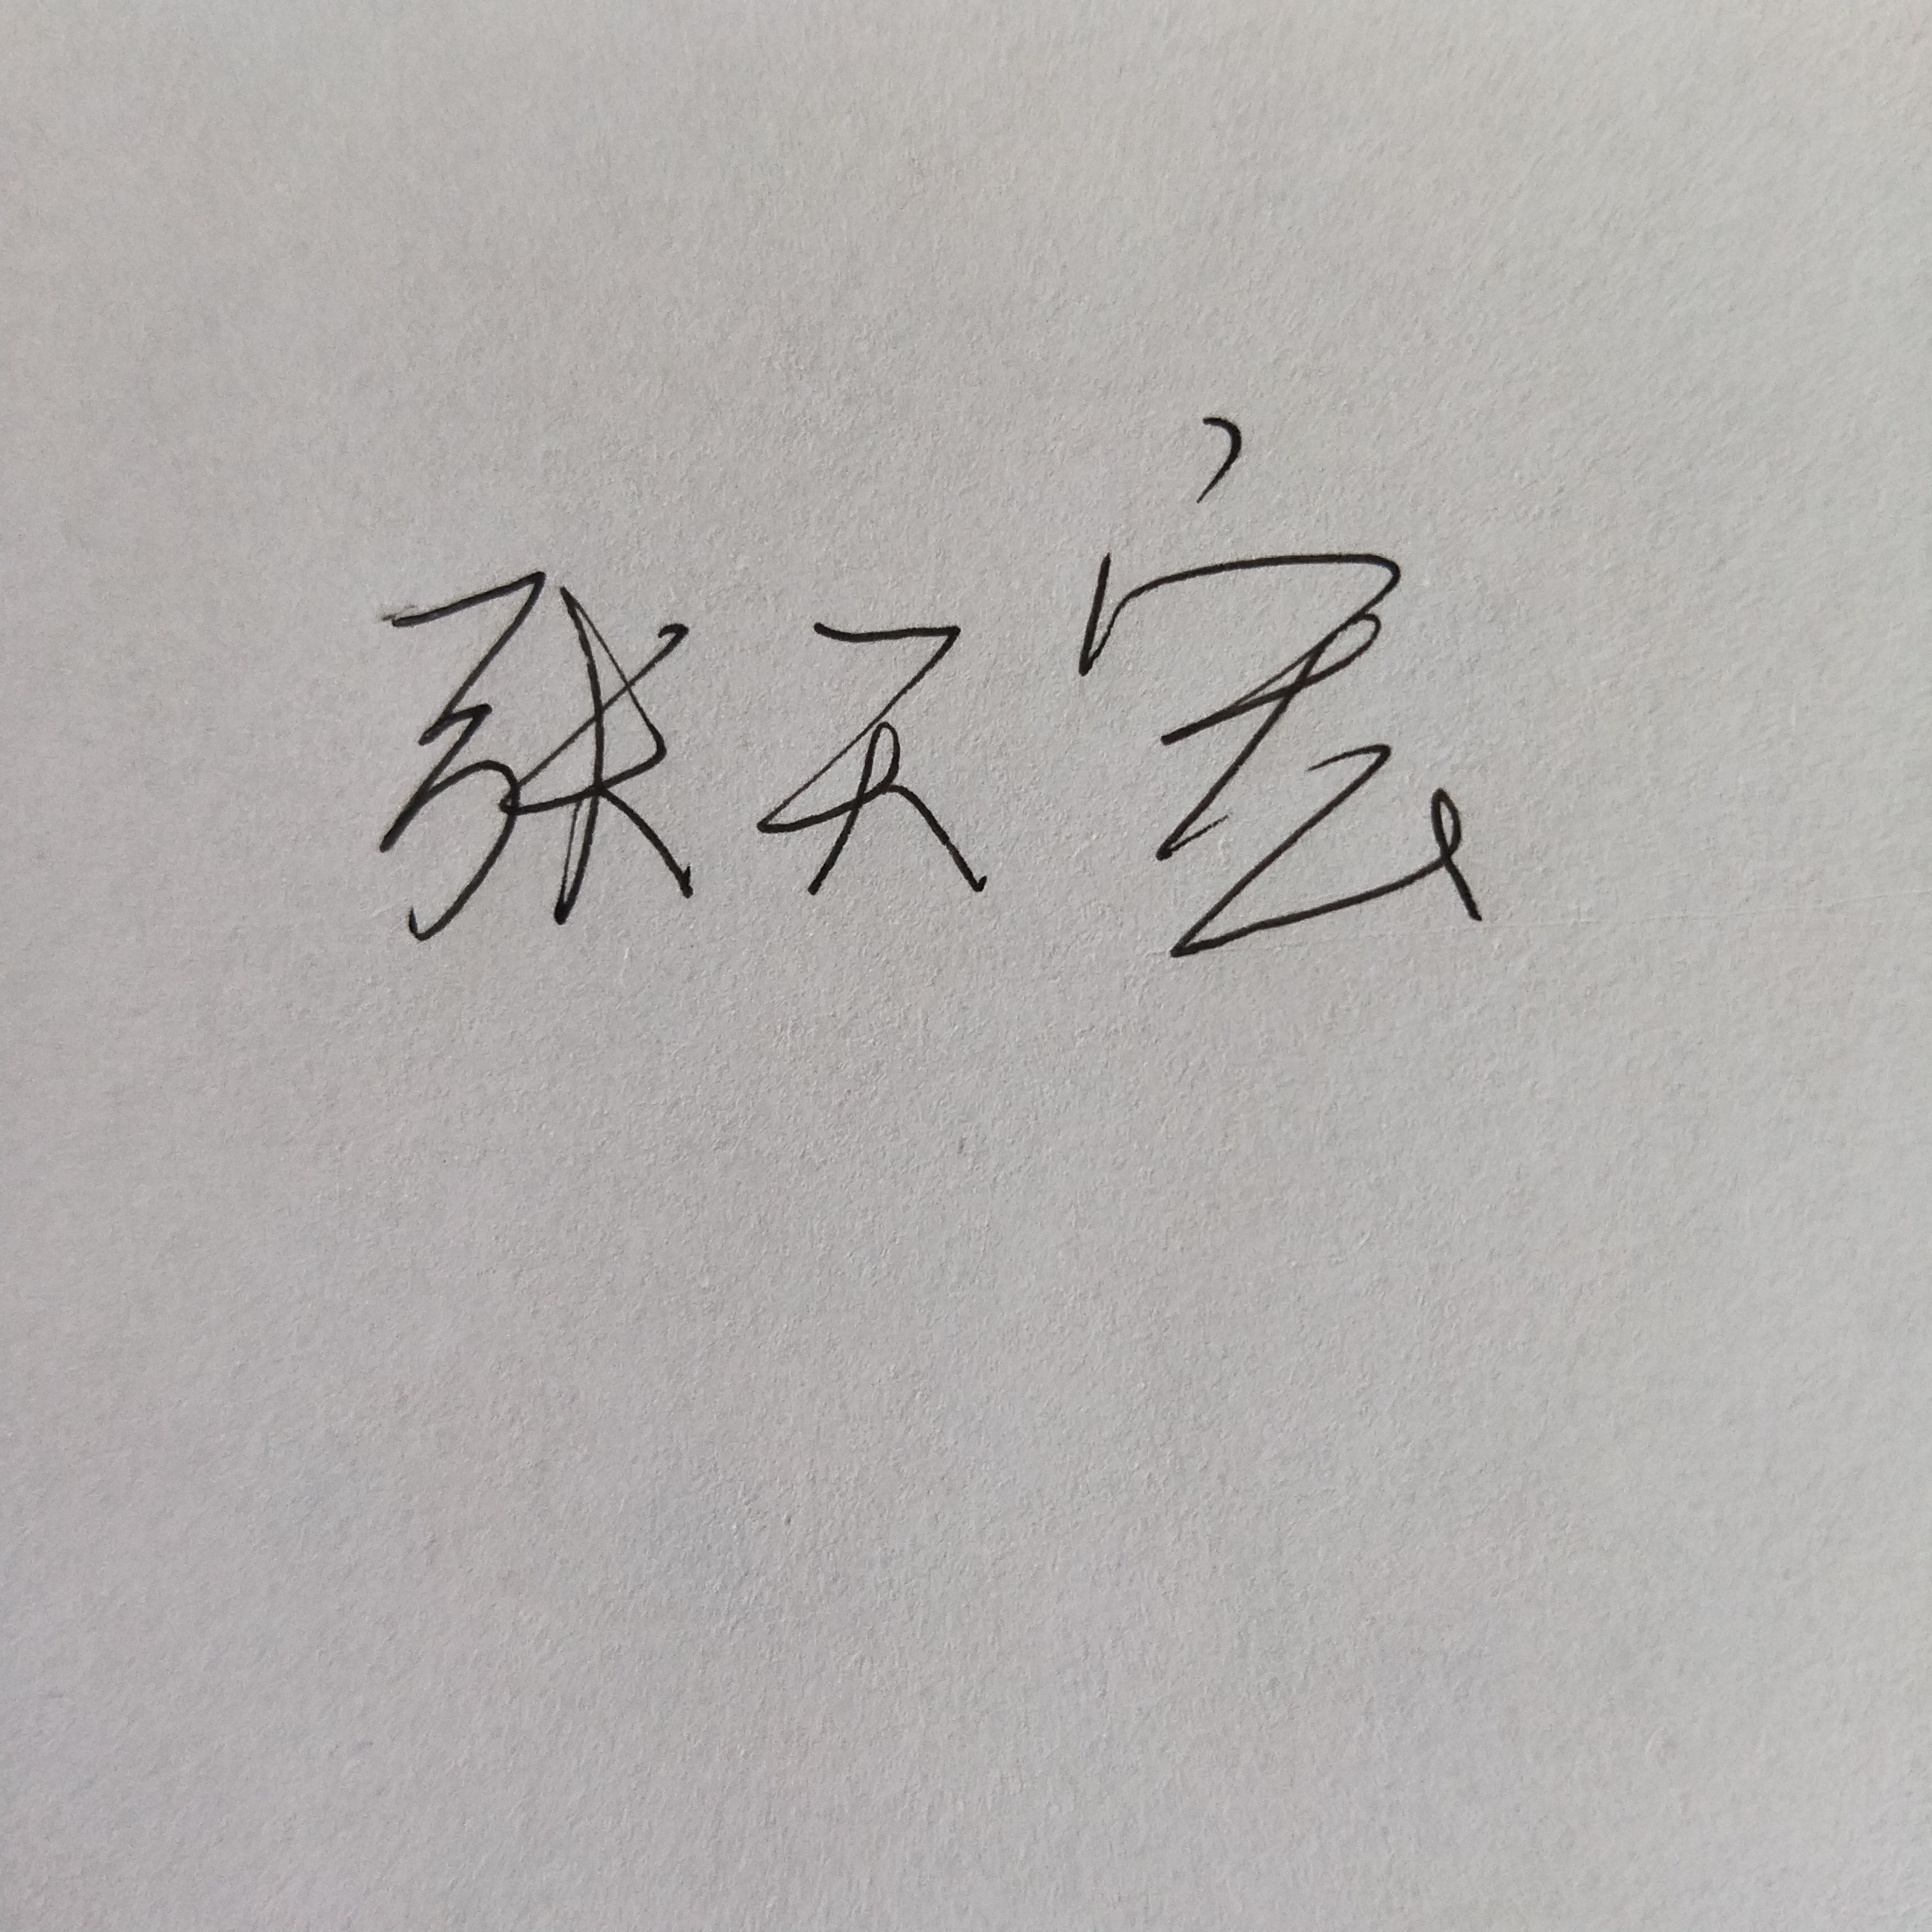 张天宏